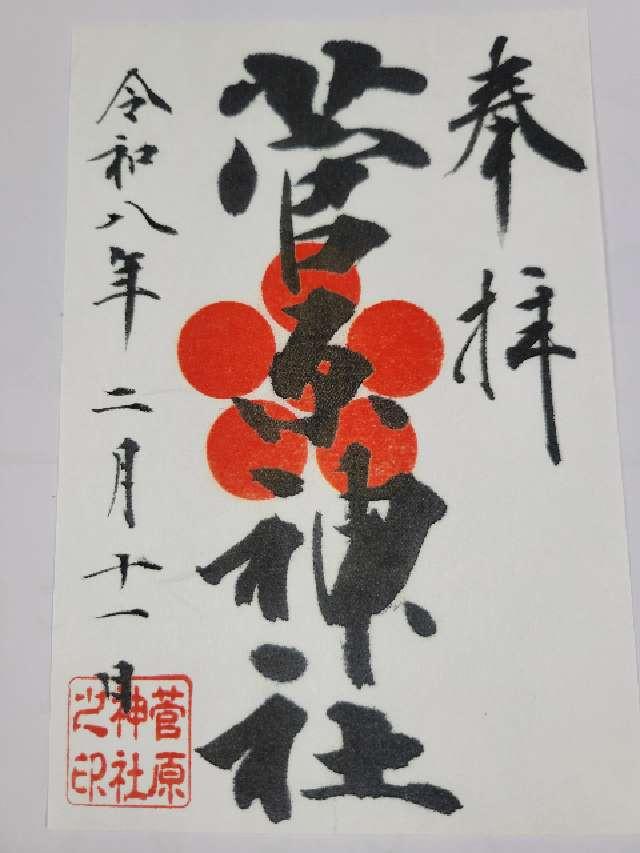 奉拝
菅原神社
令和八年二月十一日
菅原
神社
之印